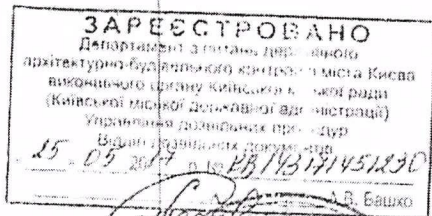 ЗАРЕЄСТРОВАНО
Департамент з питань державного
архітектурно-будівельного контролю міста Києва
виконавчого органу Київської міської ради
(Київської міської державної адміністрації)
Управління дозвільних процедур
Відділ дозвільних документів
25 05 2017 р. №
А.В. Башко